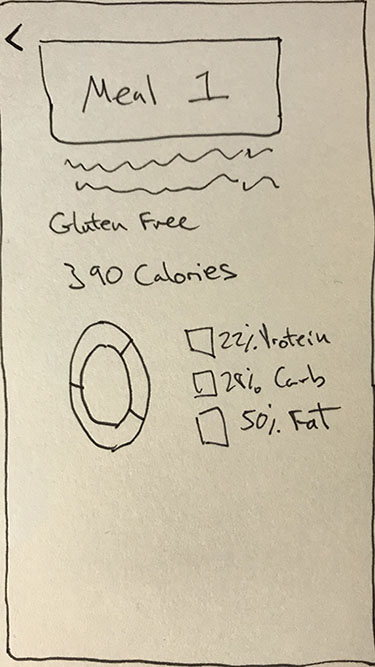 <
Meal 1
Gluten Free
390 Calories
22% Protein
28% Carb
50% Fat